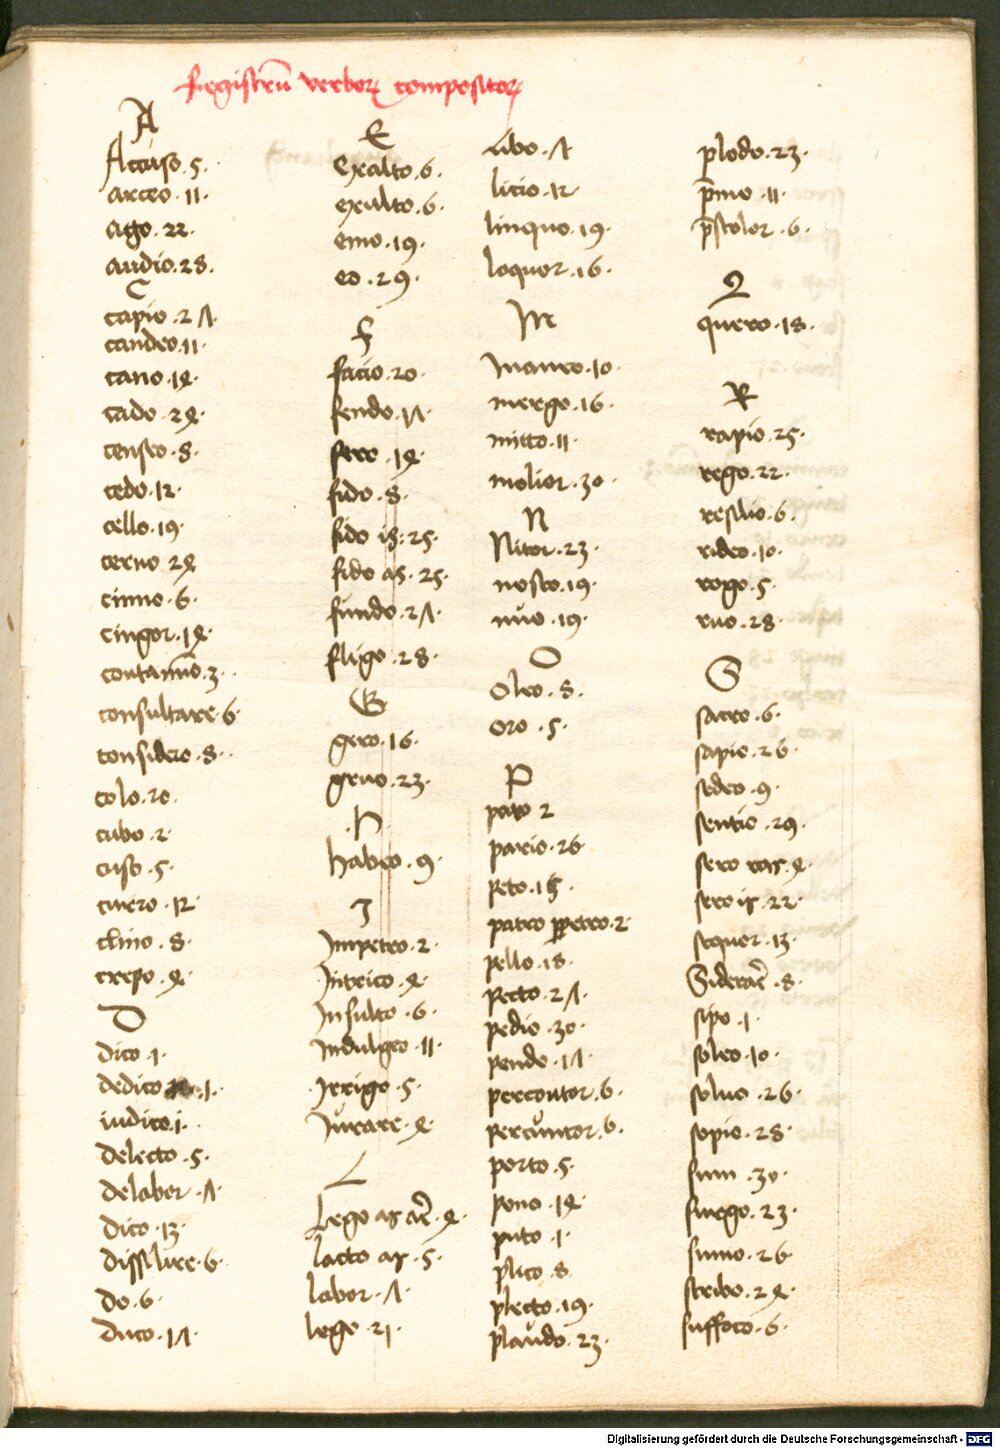 Registrū verborꝝ compositorꝝ
A
Accuso .5.
arceo .11.
ago .22.
audio .28.
C
capio .27.
candeo .11
cano .14.
cado .24.
censeo .8.
cedo .12.
cello .19.
cerno 24
cinno .6.
cingor .14.
contamīo .3.
consultare 6.
considero .8.
colo .20.
cubo .2.
cuso .5.
curro .12.
clino .8.
crepo .4.
D
Dico .1.
dedico .1.
iudico .i.
Delecto .5.
Delabor .7.
Dico .13.
Dissilire .6.
Do .6.
Duco .17.
E
Exalto .6.
exulto .6.
emo .19.
eo .29.
F
facio .20.
fendo .17.
fero .14.
fido .8.
fido is .25.
fido as .25.
fundo .27.
fligo .28.
G
gero .16.
gruo .23.
H
habeo .9.
I
Impetro .2.
Intrico .4.
Insulto .6.
Indulgeo .11.
Irrigo .5.
Iurare .4.
L
Lego as are .4.
lacto as .5.
labor .7.
lego .21.
libo .7
licio .12
linquo .19.
loquor .16.
M
maneo .10.
mergo .16.
mitto .11.
molior .30.
N
Nitor .23.
nosco .19.
nuo .19.
O
Oleo .8.
oro .5.
P
pario .26.
peto .18.
patro ꝑpetro .2.
pello .18.
pecto .27.
pedio .30.
pendo .17.
percontor .6.
percunctor .6.
porto .5.
pono .14.
puto .1.
plico .8.
plecto .19.
plaudo .23.
plodo .23.
p̄mo .11.
p̄stolor .6.
Q
quero .18.
R
rapio .25.
rego .22.
resilio .6.
rideo .10.
rogo .5.
ruo .28.
S
sacro .6.
sapio .26.
sedeo .9.
sentio .29.
sero ras .4.
sero is .22.
sequor .13.
Siderare .8.
sipo .1.
soleo .10.
soluo .26.
sopio .28.
sum .30.
surgo .23.
sumo .26.
scribo .24.
suffoco .6.
Digitalisierung gefördert durch die Deutsche Forschungsgemeinschaft - DFG